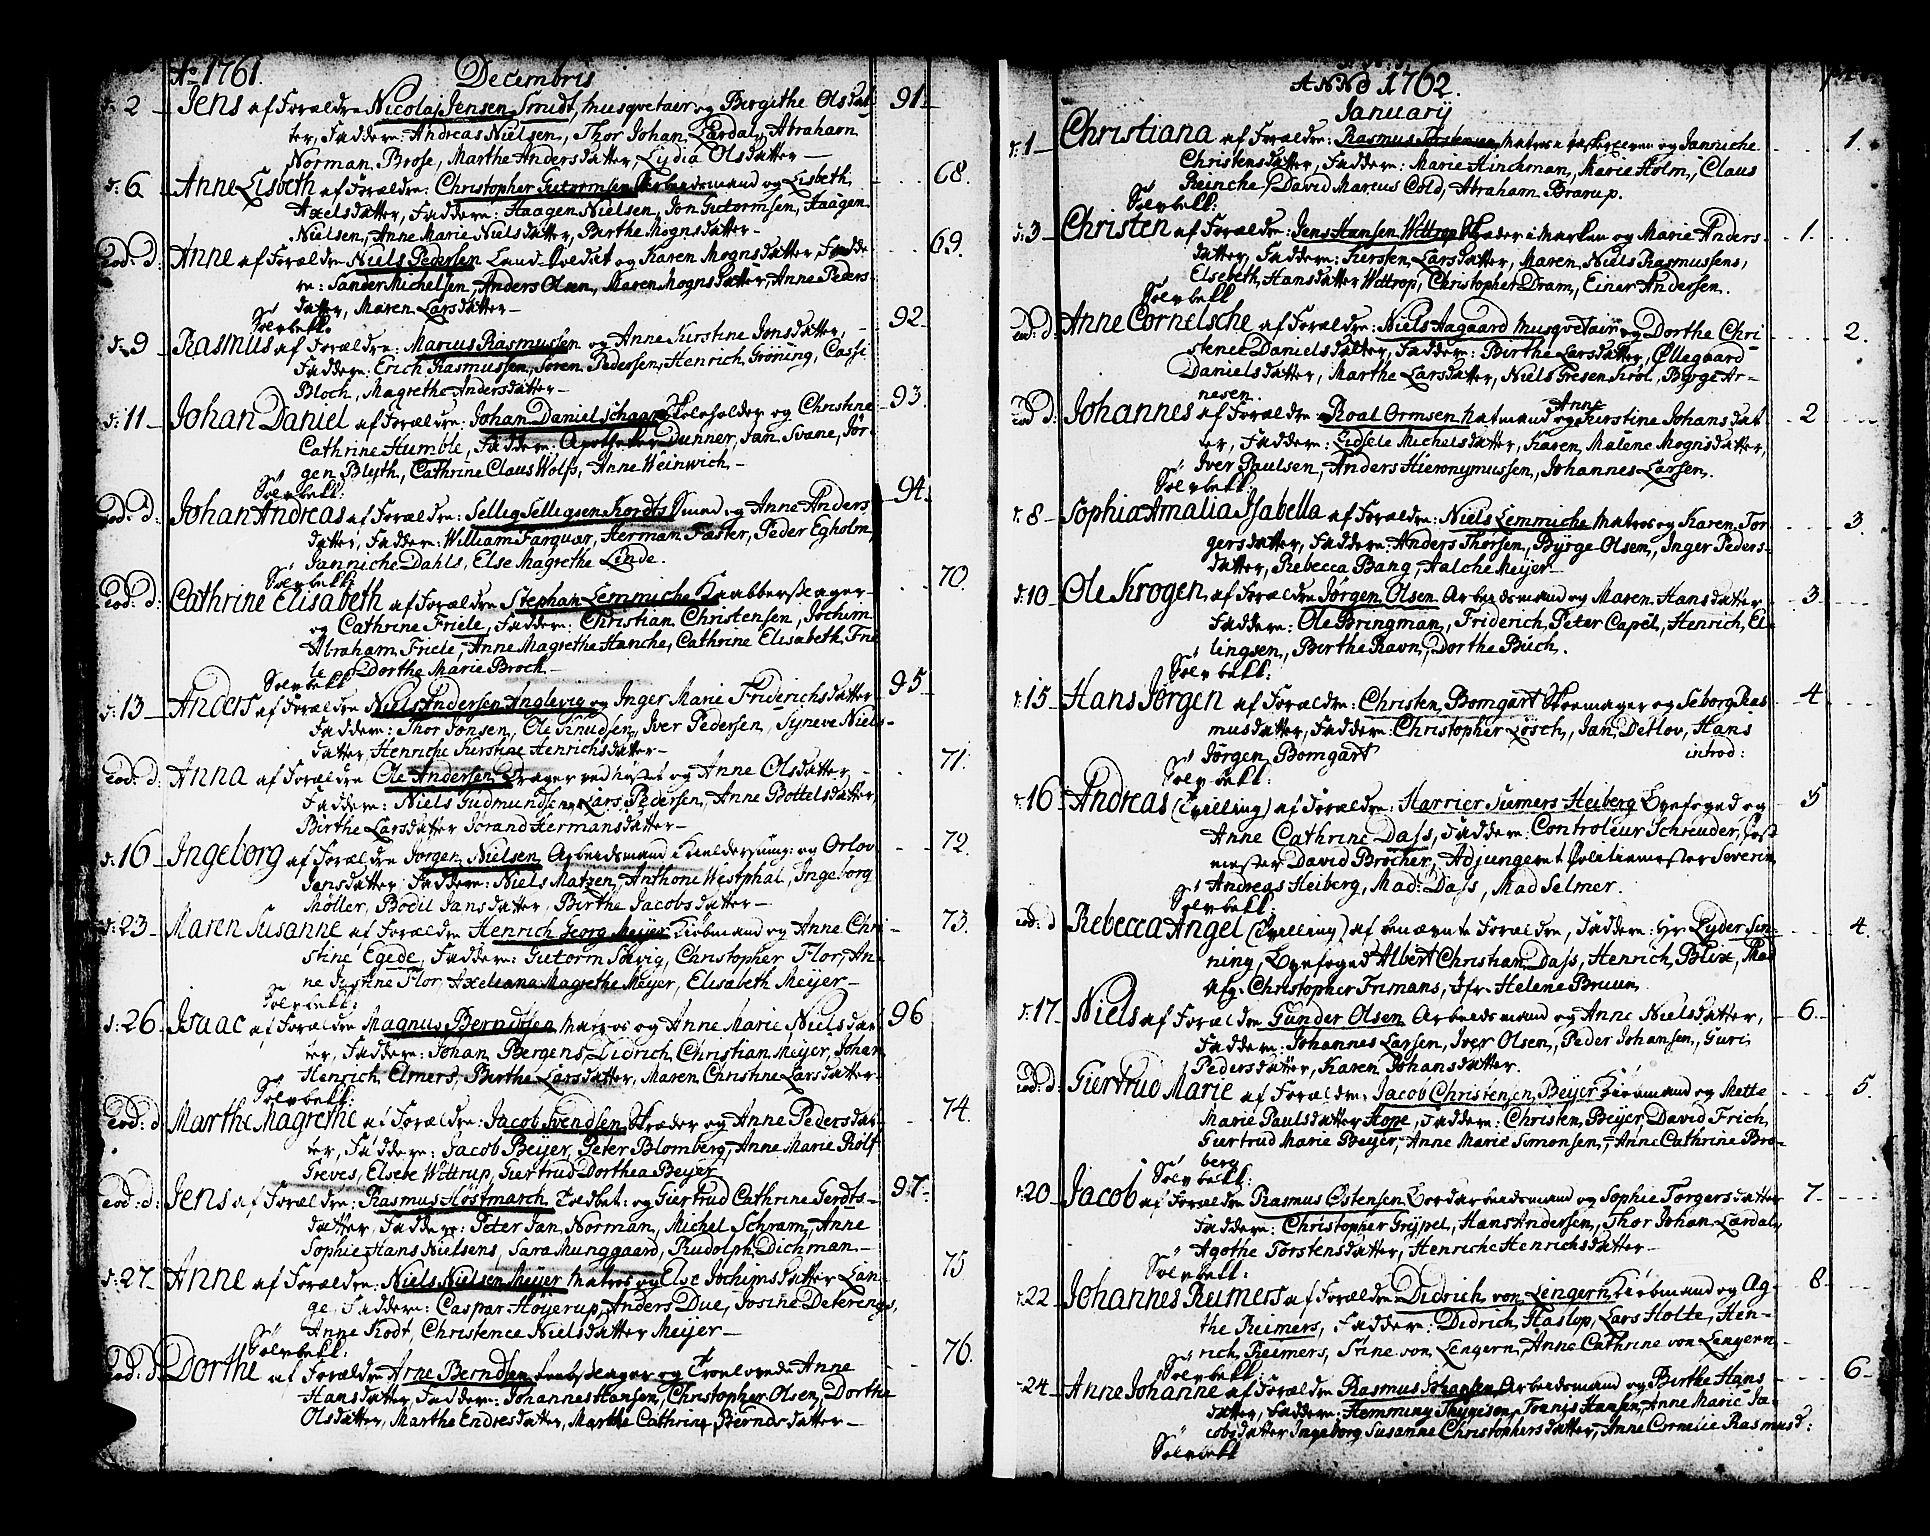 Ao 1761. Decembris
d: 2 Jens af Forældre Nicolaj Jensen Smidt, Musqvetair og Birgithe Olsdat 91.
ter, Faddere: Andreas Nielsen, Thor Johan Lærdal, Abraham
Norman Brose, Marthe Andersdatter, Lydia Olsdatter
d: 6 Anne Lisbeth af Forældre: Christopher Gutormsen Arbeidsmand og Lisbeth 68.
Axelsdatter, Faddere: Haagen Nielsen, Jon Gutormsen, Haagen
Nielsen, Anne Marie Nielsdatter, Birthe Mognsdatter
Eod: D: Anne af Forældre Niels Pedersen Land-Soldat og Karen Mognsdatter, Fadde 69.
re: Sander Michelsen, Anders Olsen, Maren Mognsdatter, Anne Peders
datter, Maren Larsdatter
Sølvbell:
d: 9 Rasmus af Forældre: Marcus Rasmussen og Anne Kirstine Jonsdatter, 92
Faddere: Erich Rasmussen, Søren Pedersen, Henrich Grøning, Cassi
Bloch, Magrethe Andersdatter
d: 11 Johan Daniel af Forældre: Johan Daniel Schaar Skoleholder og Christine 93.
Cathrine Humble, Faddere: Apotheker Dunner, Jan Svane, Jør
gen Blyth, Cathrine Claus Wolfs, Anne Weinwich
Sølvbell:
Eod: D: Johan Andreas af Forældre: Sellig Selligsen Kordts Smed og Anne Anders 94.
datter, Faddere: William Farquar, Herman Fæster, Peder Egholm,
Janniche Dahls, Else Magrethe Linde.
Sølvbell:
Eod: d: Cathrine Elisabeth af Forældre Stephan Lemmiche Knabberskager 70.
og Cathrine Friele, Faddere: Christian Christensen, Jochim
Abraham Friele, Anne Magrethe Hanche, Cathrine Elisabeth Frie
le, Dorthe Marie Brock
Sølvbell
d: 13 Anders af Forældre Niels Andersen Anglevig og Inger Marie Friderichsdatter 95
Faddere: Thor Jonsen, Ole Knudsen, Iver Pedersen, Syneve Niels
datter, Henriche Kirstine Henrichsdatter
Eod: d: Anna af Forældre Ole Andersen Drager ved Huset og Anne Olsdatter 71.
Faddere: Niels Gudmundsen, Lars Pedersen, Anne Bottelsdatter,
Birthe Larsdatter Jørand Hermansdatter
d: 16 Ingeborg af Forældre Jørgen Nielsen Arbeidsmand og Orlov 72
Jansdatter, Faddere: Niels Matzen, Anthoni Westphal, Ingeborg
Møller, Bodil Jansdatter, Birthe Jacobsdatter
d: 23 Maren Susanne af Forældre Henrich Georg Meyer Kiøbmand og Anne Chri 73.
stine Egede, Faddere: Gutorm Solvig, Christopher Flor, An
ne Justine Flor, Axeliana Magrethe Meyer, Elisabeth Meyer
Sølvbell:
d: 26 Isaac af Forældre Magnus Berndtsen Matros og Anne Marie Nielsdat 96
ter, Faddere: Johan Bergens, Didrich Christian Meyer, Johan
Henrich Elmers, Birthe Larsdatter, Maren Christine Larsdatter
Sølvbell:
Eod: d: Marthe Magrethe af Forældre: Jacob Svendsen Skræder og Anne Pedersdat 74.
ter, Faddere: Jacob Beyer, Peter Blomberg, Anne Marie Rolf
Greves, Elsebe Wittrup, Giertrud Dorthea Beyer
Eod: d: Jens af Forældre: Rasmus Høstmarch og Giertrud Cathrine Gerdts 97.
datter, Faddere: Peter Jan Norman, Michel Schram, Anne
Sophie Hans Nielsens, Sara Munggaard, Rudolph Dichman
d: 27. Anne af Forældre: Niels Nielsen Meyer Matros og Else Jochimsdatter Lan 75
ge, Faddere: Caspar Høyerup, Anders Due, Josine Deterings,
Anne Kodt, Christence Nielsdatter Meyer
Sølvbell:
Eod: D: Dorthe af Forældre Arne Berndsen og Troelovede Anne 76.
Hansdatter, Faddere: Johannes Hansen, Christopher Olsen, Dorthe
Olsdatter, Marthe Endresdatter, Marthe Cathrine Berndsdatter
ANNO 1762.
Januarij
d: 1 Christiana af Forældre: Rasmus Torstensen Matros og Janniche 1.
Christensdatter, Faddere: Marie Hinckman, Marie Holm, Claus
Reinche, David Marcus Cold, Abraham Brarup.
Sølvbell:
d: 3 Christen af Forældre: Jens Hansen Wittrop Skræder i Marken og Marie Anders 1.
datter, Faddere: Kirsten Larsdatter, Maren Niels Rasmussens,
Elsebeth Hansdatter Wittrop, Christopher Dram, Einer Andersen.
Sølvbell
Eod: d: Anne Cornelsche af Forældre: Niels Aagaard Musqvetair og Dorthe Chri 2.
stence Danielsdatter, Faddere: Birthe Larsdatter, Øllegaard
Danielsdatter, Marthe Larsdatter, Niels Gresen Kiøl, Byrge Ar
nesen.
Eod d: Johannes af Forældre: Roal Ormsen Natmand og Anne Kirstine Johansdat 2
ter, Faddere: Zidsele Michelsdatter, Karen Malene Mognsdatter,
Iver Paulsen, Anders Hieronymussen, Johannes Larsen.
Sølvbell:
d: 8 Sophia Amalia Isabella af Forældre: Niels Lemmiche Matros og Karen Tor 3
gersdatter, Faddere: Anders Thorsen, Byrge Olsen, Inger Peders
datter, Rebecca Bang, Aalche Meyer
d: 10 Ole Krogen af Forældre Jørgen Olsen Arbeidsmand og Maren Hansdatter 3
Faddere: Ole Bringman, Friderich Peter Capel, Henrich El
lingsen, Birthe Ravn, Dorthe Büch.
Sølvbell:
d: 15 Hans Jørgen af Forældre: Christen Bomgart Skoemager og Seborg Ras 4
musdatter, Faddere: Christopher Lösch, Jan Detlov, Hans
Jørgen Bomgart introd:
Sølvbell:
d: 16 Andreas (Tvilling) af Forældre: Harrier Siemers Heiberg Byefoged og 5
Anne Cathrine Dass, Faddere: Controleur Schreuder, Post
mester David Brøcher, Adjungeret Politiemester Severin
Andreas Heiberg, Mad: Dass, Mad Selmer.
Sølvbell:
Eod: d Rebecca Angel (Tvilling) af benævnte Forældre, Faddere: Hr Lyder Sin 4.
ning, Byefoged Albert Christian Dass, Henrich Blix, Mad
Afg. Christopher Frimans, Jfr. Helene Bruun
d: 17. Niels af Forældre Gunder Olsen Arbeidsmand og Anne Nielsdatter, 6
Faddere: Johannes Larsen, Iver Olsen, Peder Johansen, Guri
Pedersdatter, Karen Johansdatter.
Eod: d: Giertrud Marie af Forældre: Jacob Christensen Beyer Kiøbmand og Mette 5.
Marie Paulsdatter Hope, Faddere: Christen Beyer, David Frich,
Giertrud Marie Beyer, Anne Marie Simonsen, Anne Cathrine Bro
berg
Sølvbell:
d: 20 Jacob af Forældre Rasmus Østensen Bordarbeidsmand og Sophie Torgersdatter 7.
Faddere: Christopher Grypel, Hans Andersen, Thor Johan Lærdal,
Agothe Torstensdatter, Henriche Henrichsdatter
Sølvbell:
d: 22 Johannes Reimers af Forældre Didrich von Lengern Kiøbmand og Ag 8
the Reimers, Faddere: Didrich Haslop, Lars Holte, Hen
rich Reimers, Stine von Lengern, Anne Cathrine von Lengern
Sølvbell:
24 Anne Johanne af Forældre Rasmus Johansen Arbeidsmand og Birthe Hans 6
datter, Faddere: Hemming Thygesen, Tønnes Hansen, Anne Marie Ja
cobsdatter Ingeborg Susanne Christophersdatter, Anne Cornelie Rasmusd:
Sølvbell